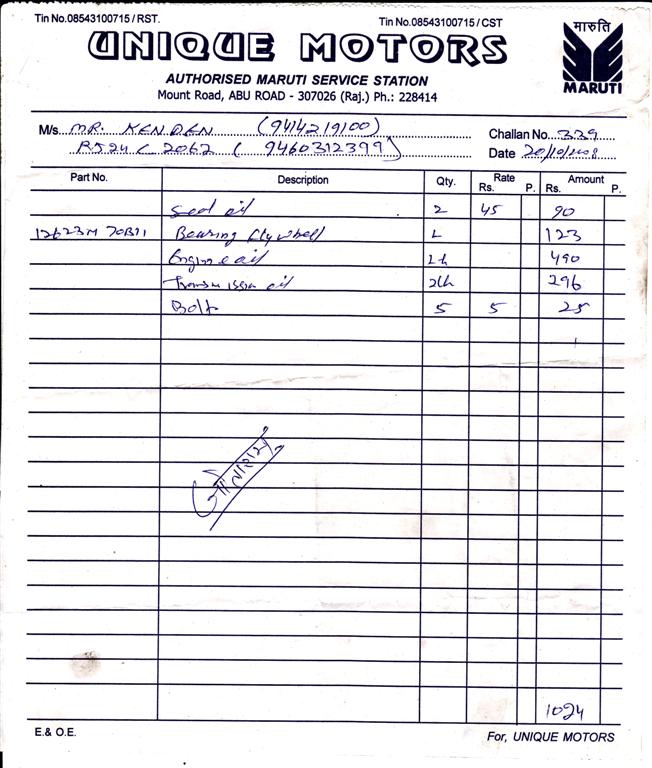 Tin No.08543100715 / RST. Tin No.08543100715 / CST
UNIQUE MOTORS
मारुति
MARUTI
AUTHORISED MARUTI SERVICE STATION
Mount Road, ABU ROAD - 307026 (Raj.) Ph.: 228414
M/s. MR. KENDEN (9414219100) Challan No. 339
RJ24 C 2062 ( 9460312399) Date 20/10/2008
Part No. Description Qty. Rate Amount
Rs. P. Rs. P.
Seal oil 2 45 90
12623M 70B11 Bearing flywheel 1 123
Engine oil 490
Transmission oil 296
Bolt 5 5 25
1024
E.& O.E. For, UNIQUE MOTORS